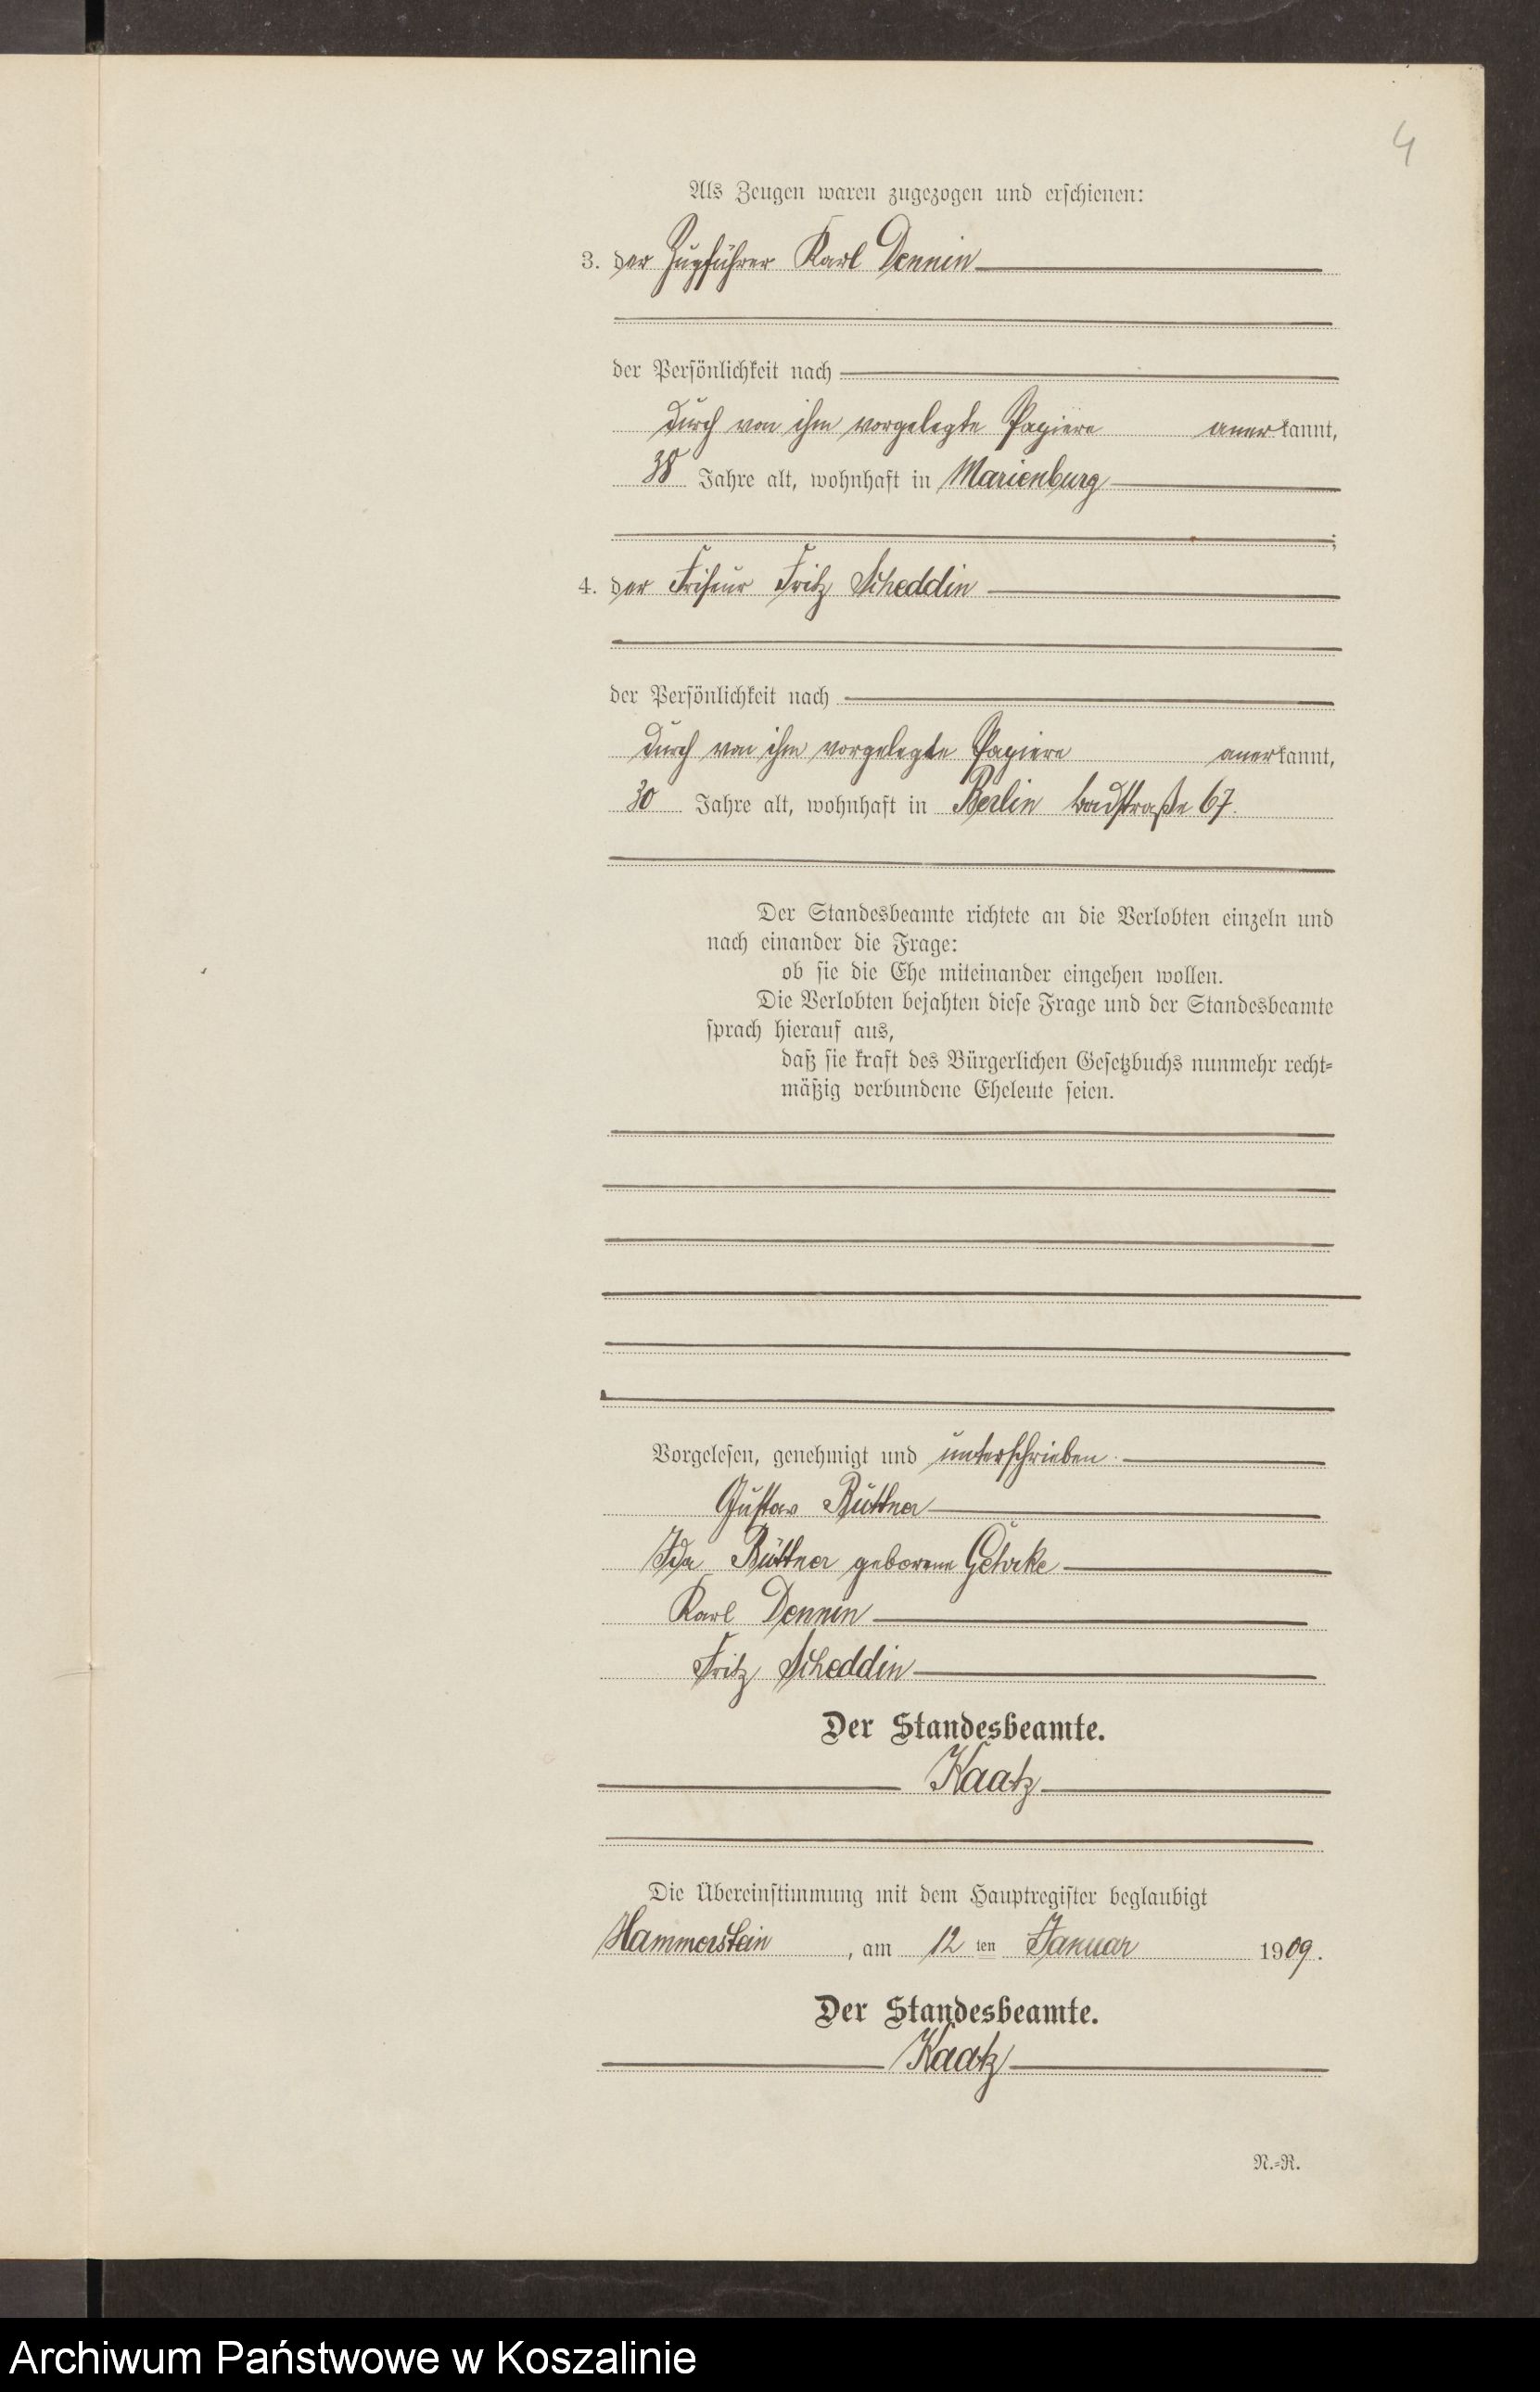 4
Als Zeugen waren zugezogen und erschienen:
3. der Zugführer Karl Dennin
der Persönlichkeit nach
durch von ihm vorgelegte Papiere anerkannt,
38 Jahre alt, wohnhaft in Marienburg
;
4. der Friseur Fritz Scheddin
der Persönlichkeit nach
durch von ihm vorgelegte Papiere anerkannt,
30 Jahre alt, wohnhaft in Berlin Badstraße 67.
Der Standesbeamte richtete an die Verlobten einzeln und
nach einander die Frage:
ob sie die Ehe miteinander eingehen wollen.
Die Verlobten bejahten diese Frage und der Standesbeamte
sprach hierauf aus,
daß sie kraft des Bürgerlichen Gesetzbuchs nunmehr recht=
mäßig verbundene Eheleute seien.
Vorgelesen, genehmigt und unterschrieben.
Gustav Büttner
Ida Büttner geborene Gehrke
Karl Dennin
Fritz Scheddin
Der Standesbeamte.
Kaatz
Die Übereinstimmung mit dem Hauptregister beglaubigt
Hammerstein, am 12 ten Januar 1909.
Der Standesbeamte.
Kaatz
N.=R.
Archiwum Państwowe w Koszalinie